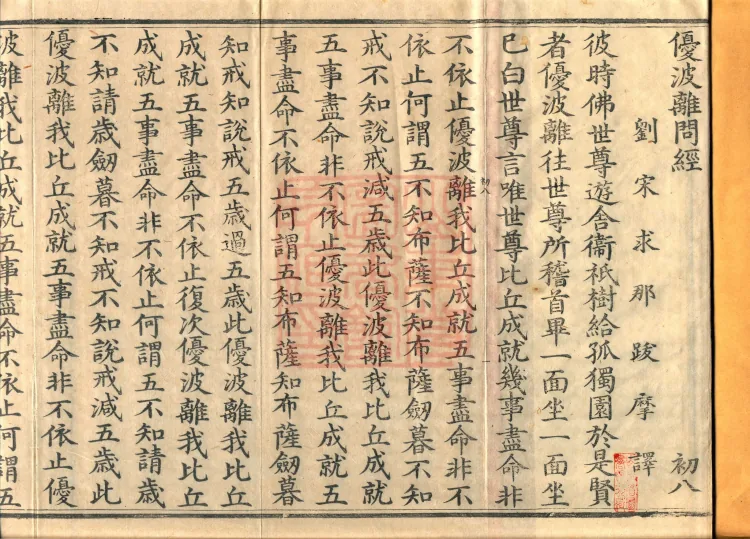 優波離問經 初八
劉宋求那跋摩譯
彼時佛世尊遊舍衛祇樹給孤獨園於是賢
者優波離往世尊所稽首畢一面坐一面坐
已白世尊言唯世尊比丘成就幾事盡命非
初八
不依止優波離我比丘成就五事盡命非不
依止何謂五不知布薩不知布薩劒暮不知
戒不知說戒減五歲此優波離我比丘成就
五事盡命非不依止優波離我比丘成就五
事盡命不依止何謂五知布薩知布薩劒暮
知戒知說戒五歲過五歲此優波離我比丘
成就五事盡命不依止復次優波離我比丘
成就五事盡命非不依止何謂五不知請歲
不知請歲劒暮不知戒不知說戒減五歲此
優波離我比丘成就五事盡命非不依止優
波離我比丘成就五事盡命不依止何謂五